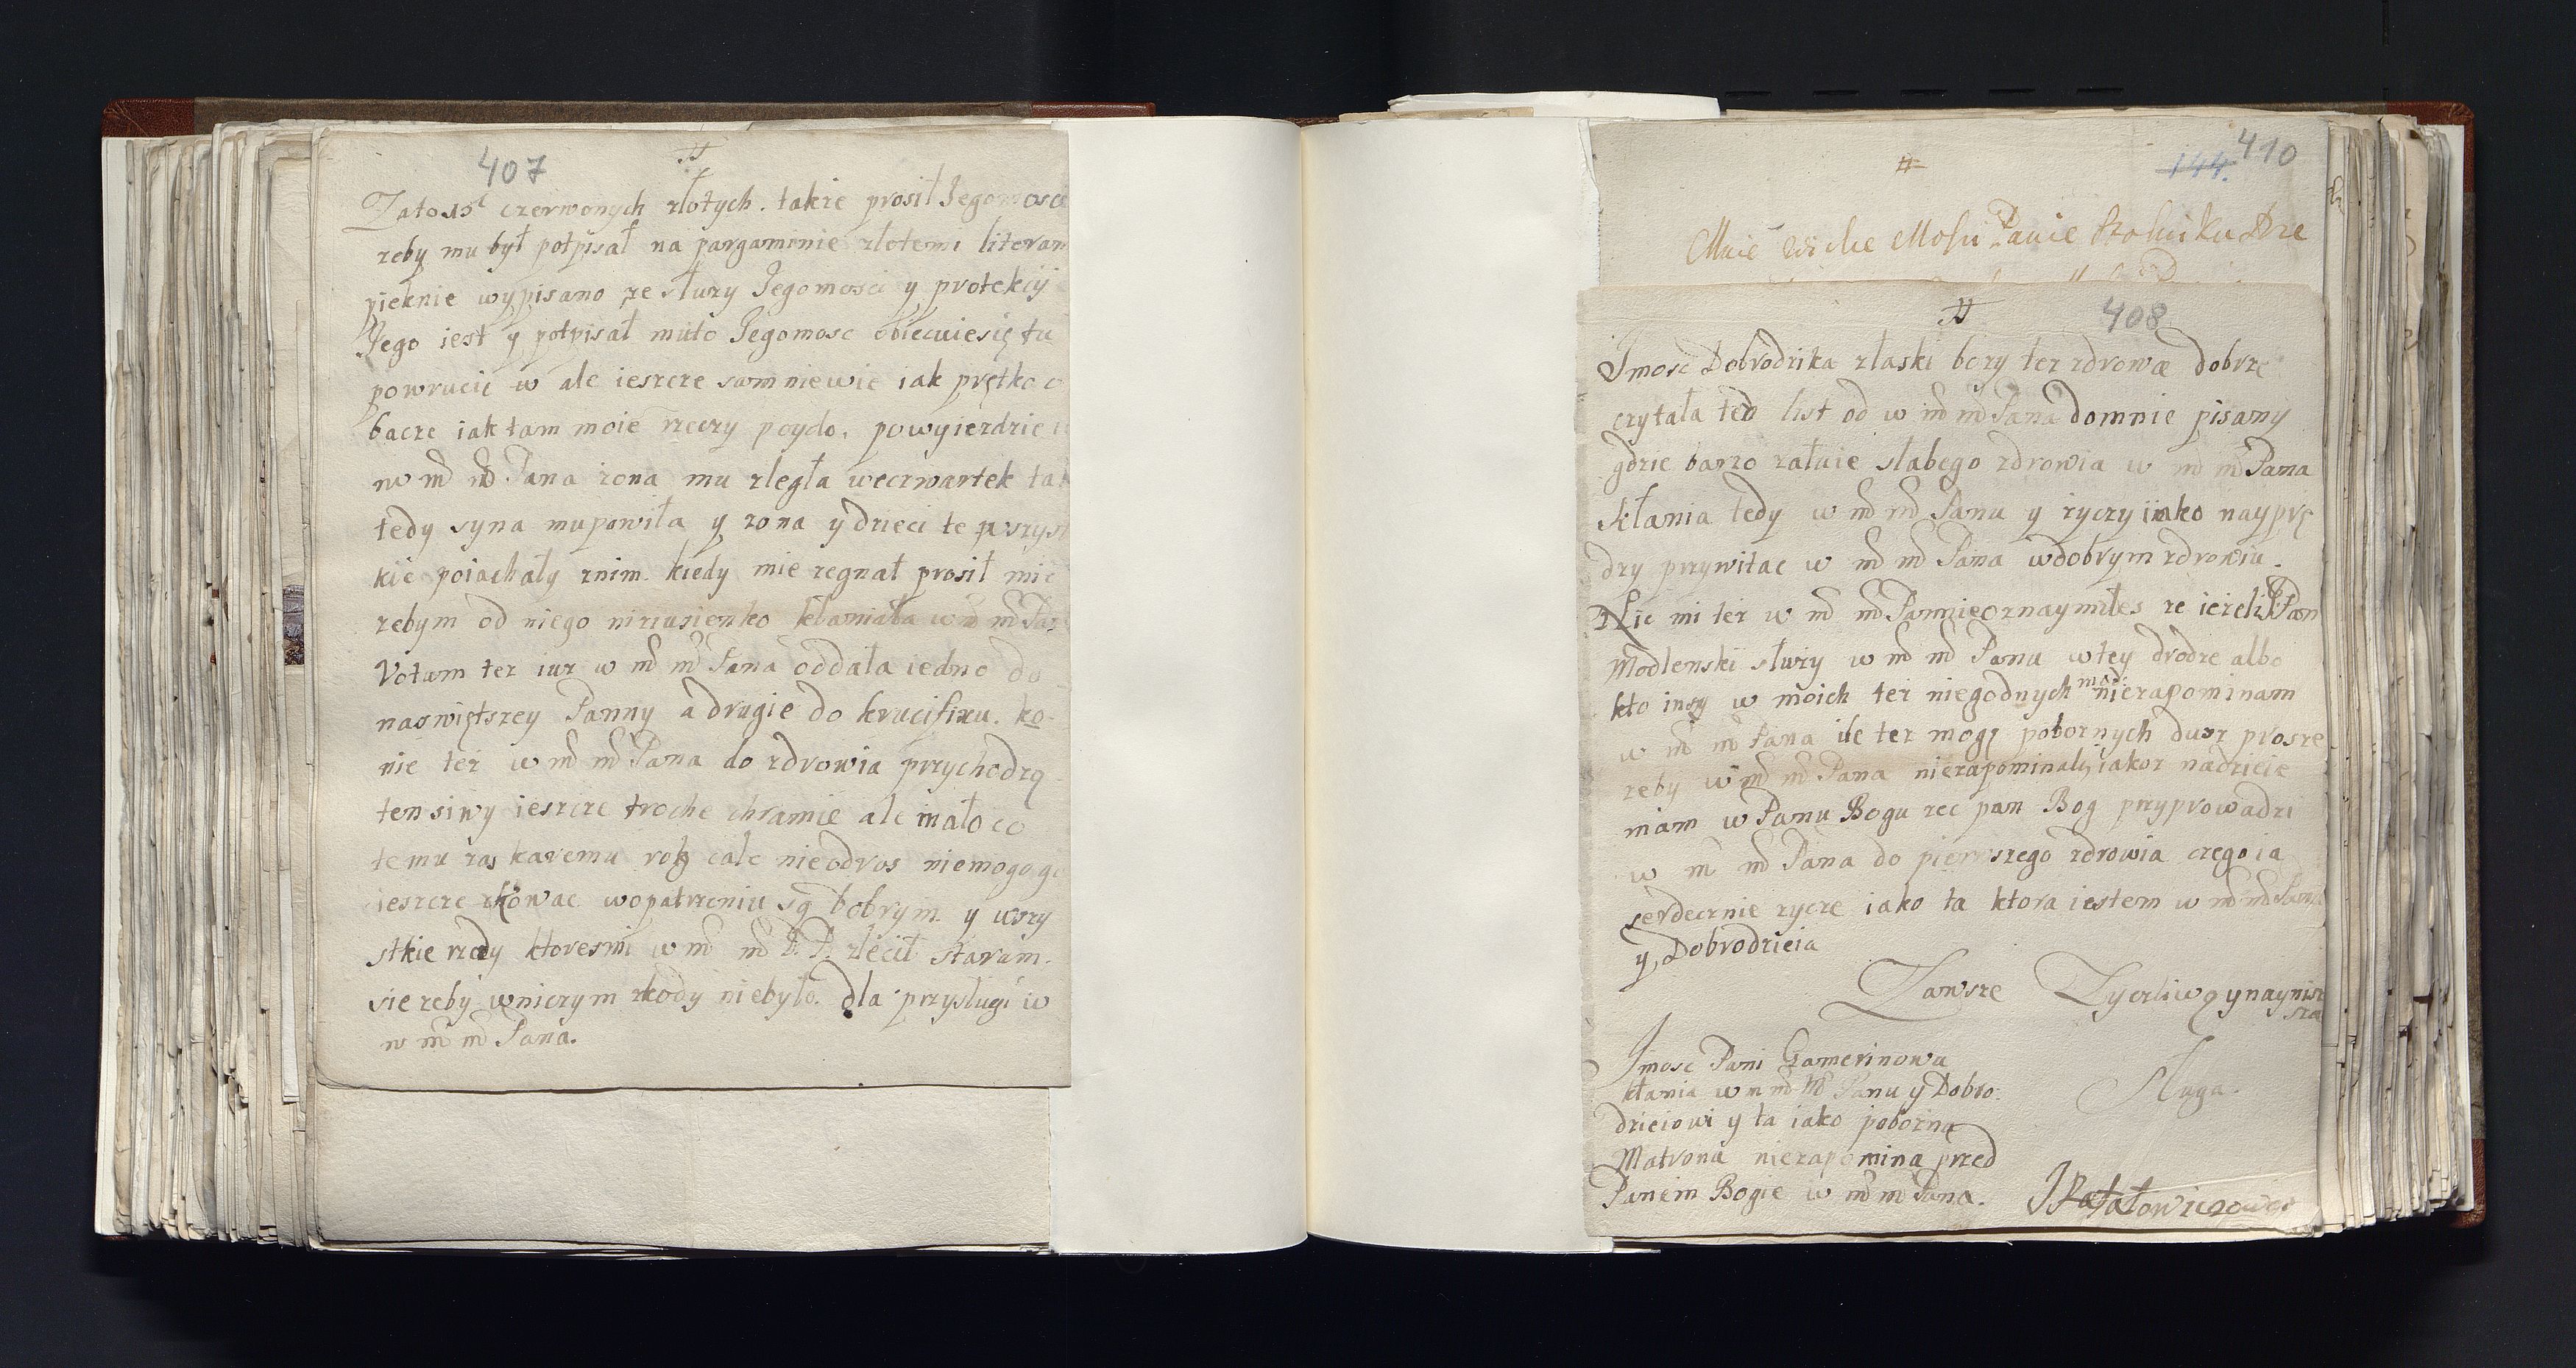 407
#
czerwonych złotych. takze prosił Jegomosci
zeby mu był potpisał na pargaminie złotemi literam
pieknie wypisano ze słuzy Jegomosci y protekcij
Jego iest y potpisał muto Jegomosc obiecuiesię tu
powrucic w ale ieszcze sam niewie iak prętko o
bacze iak tam moie rzeczy poydo. powyiezdzie
w m m Pana zona mu zległa weczwartek tak
tedy syna mupowiła y zona y dzieci te wszyst
kie poiachały znim. kiedy mie zegnał prosił mie
zebym od niego niziusienko kłaniała w m m Pa
Votum tez iuz w m m Pana oddała iedno do
naswiętszey Panny a drugie do krucifixu. ko-
nie tez w m m Pana do zdrowia przychodzą
ten siwy ieszcze troche chramie ale mało co
temu zas karemu rog cale nieodros niemogo go
ieszcze kowac wopatrzeniu są dobrym y wszy
stkie rzady ktoresmi w m m P. D. zlecił staram.
sie zeby wniczym skody niebyło. dla przysługi w
w m m Pana.
#
144. 410
Panie
#
408
Jmosc Dobrodzika złaski bozy tez zdrowa dobrze
czytała ten list od w m m Pana domnie pisany
gdzie barzo załuie słabego zdrowia w m m Pana
kłania tedy w m m Panu y zyczy iako nayprę
dzy przywitac w m m Pana wdobrym zdrowiu.
Nic mi tez w m m Pannieoznaymiłes ze iezeli Pan
Modlenski słuzy w m m Panu wtey drodze albo
kto inszy w moich tez niegodnych mod. niezapominam
w m m Pana ile tez mogę poboznych dusz prosze
zeby w m m Pana niezapominały iakoz nadzieie
mam w Panu Bogu zec pan Bog przyprowadzi
w m m Pana do pierwszego zdrowia czego ia
serdecznie zycze iako ta ktora iestem w m m Pana
y Dobrodzieia
Zawsze Zycliwą ynaynisz
sza
Sługa.
Jmosc Pani Gamerinowa
kłania w m m Panu y Dobro.
dzieiowi y ta iako pobozna
Matrona niezapomina przed
Panem Bogie w m m Pana.